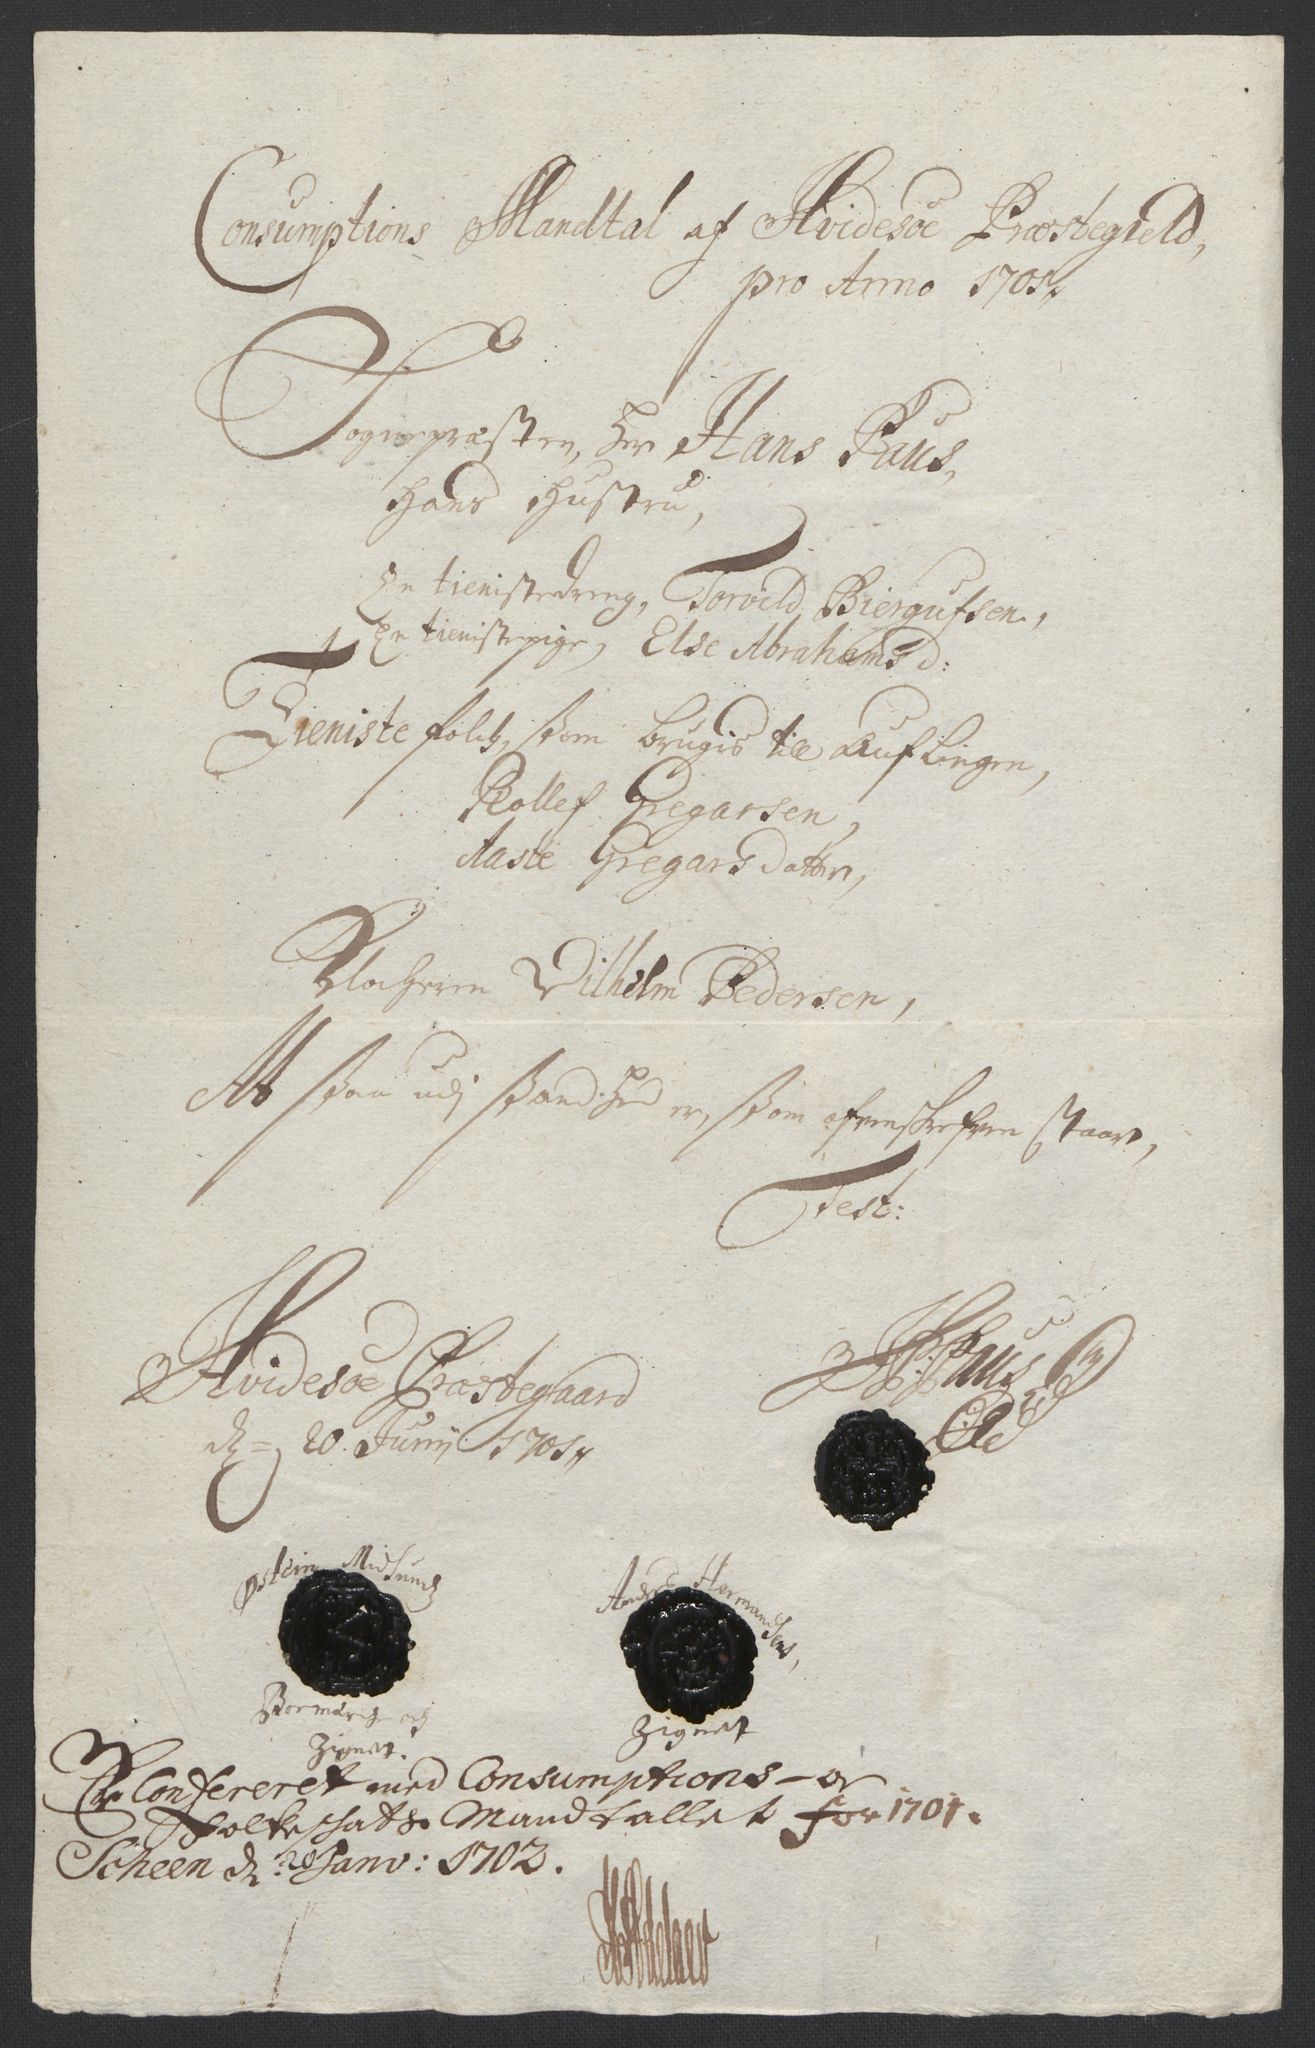 Consumptions Mandtal af Hvidesøe Præstegield,
pro Anno 1701,
Sognepræsten, Hr Hans Paus,
hans Hustru,
En tienistedreng, Torvild Biergufsen,
En tienistepige, Else Abrahams d:
Tieniste folch, som brugis till Auflingen,
Rollef Gregarsen,
Aaste Gregars datter,
Klocheren Vilhelm Pedersen,
At saa udj Sandhed er, som ofvenskrefven staar,
Test:
Hvidesøe Præstegaard
dn 20 Junij 1701
H: Paus
Østein Midsund
Andrs Hermandsen,
Boemerche och
Zignet.
Zignet
Er Confereret med Consumptions- og
Folkeschats Mandtallet for 1701.
Scheen d: 20 Janv: 1702.